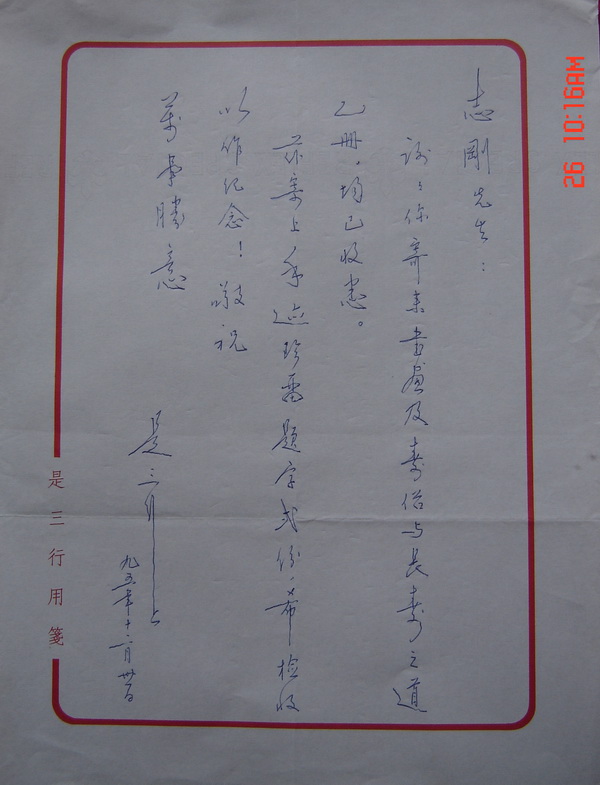 志剛先生：
謝謝你寄来書画及壽僖与長壽之道
乙册，均已收悉。
茲寄上手迹珍藏題字弍份，希檢收
以作紀念！敬祝
萬事勝意
是三行上
九五年十二月廿日
是三行用箋
26 10:16AM